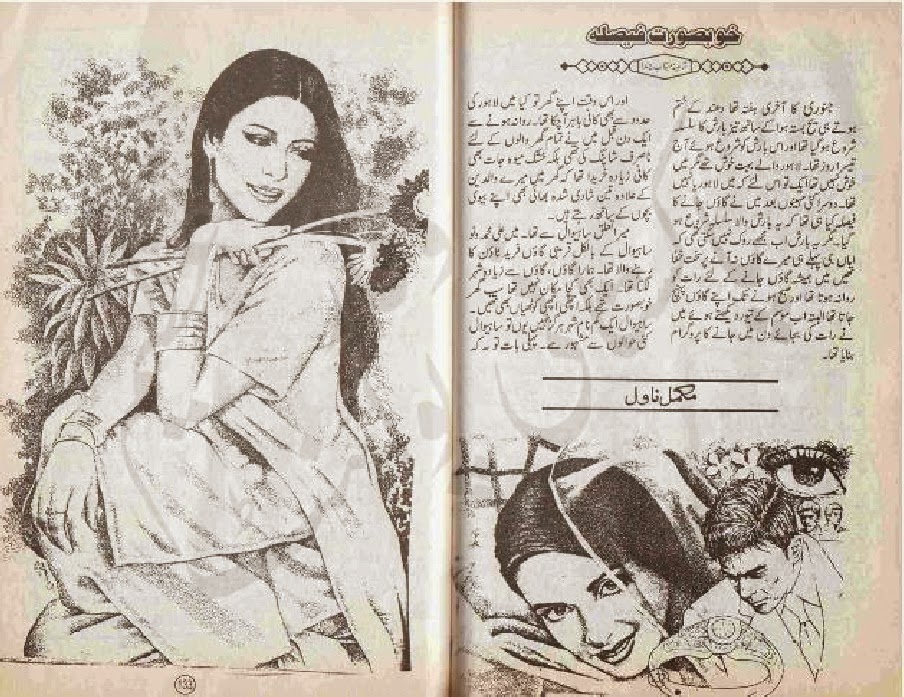 خوبصورت فیصلہ
جنوری کا آخری ہفتہ تھا دھند کے ختم
ہوتے ہی یخ بستہ ہوا کے ساتھ تیز بارش کا سلسلہ
شروع ہو گیا تھا اور اس بارش کو شروع ہوئے آج
تیسرا روز تھا۔ لاہور والے بہت خوش تھے مگر میں
خوش نہیں تھا ایک تو اس لئے کہ میں لاہور یا نہیں
تھا۔ دوسرا کئی مہینوں بعد میں نے گاؤں جانے کا
فیصلہ کیا ہی تھا کہ یہ بارش والا سلسلہ شروع ہو
گیا۔ مگر یہ بارش اب مجھے روک نہیں سکتی تھی کہ
اماں جی پہلے ہی میرے گاؤں نہ آنے پر سخت خفا
تھیں میں ہمیشہ گاؤں جانے کے لئے رات کو
روانہ ہوتا تھا اور صبح ہونے تک اپنے گاؤں پہنچ
جاتا تھا البتہ اب موسم کے تیور دیکھتے ہوئے میں
نے رات کی بجائے دن میں جانے کا پروگرام
بنایا تھا۔
اور اس وقت اپنے گھر تو کیا میں لاہور کی
حدود سے بھی کافی باہر آ چکا تھا۔ روانہ ہونے سے
ایک دن قبل میں نے تمام گھر والوں کے لئے
نا صرف شاپنگ کی تھی بلکہ خشک میوہ جات بھی
کافی زیادہ خریدا تھا کہ گھر میں میرے والدین
کے علاوہ تین شادی شدہ بھائی بھی اپنے بیوی
بچوں کے ساتھ رہتے ہیں۔
میرا تعلق ساہیوال سے تھا۔ میں علی محمد
ساہیوال کے بالکل قریبی گاؤں فرید ٹاؤن کا
رہنے والا تھا۔ ہمارا گاؤں، گاؤں سے زیادہ شہر
لگتا تھا۔ ایک بھی کچا مکان نہیں تھا سب گھر
خوبصورت تھے بلکہ اچھی اچھی کوٹھیاں بھی تھیں۔
ساہیوال ایک گم نام شہر ہرگز نہیں یوں تو ساہیوال
کئی حوالوں سے مشہور ہے۔ پہلی بات تو یہ کہ
مکمل ناول
133